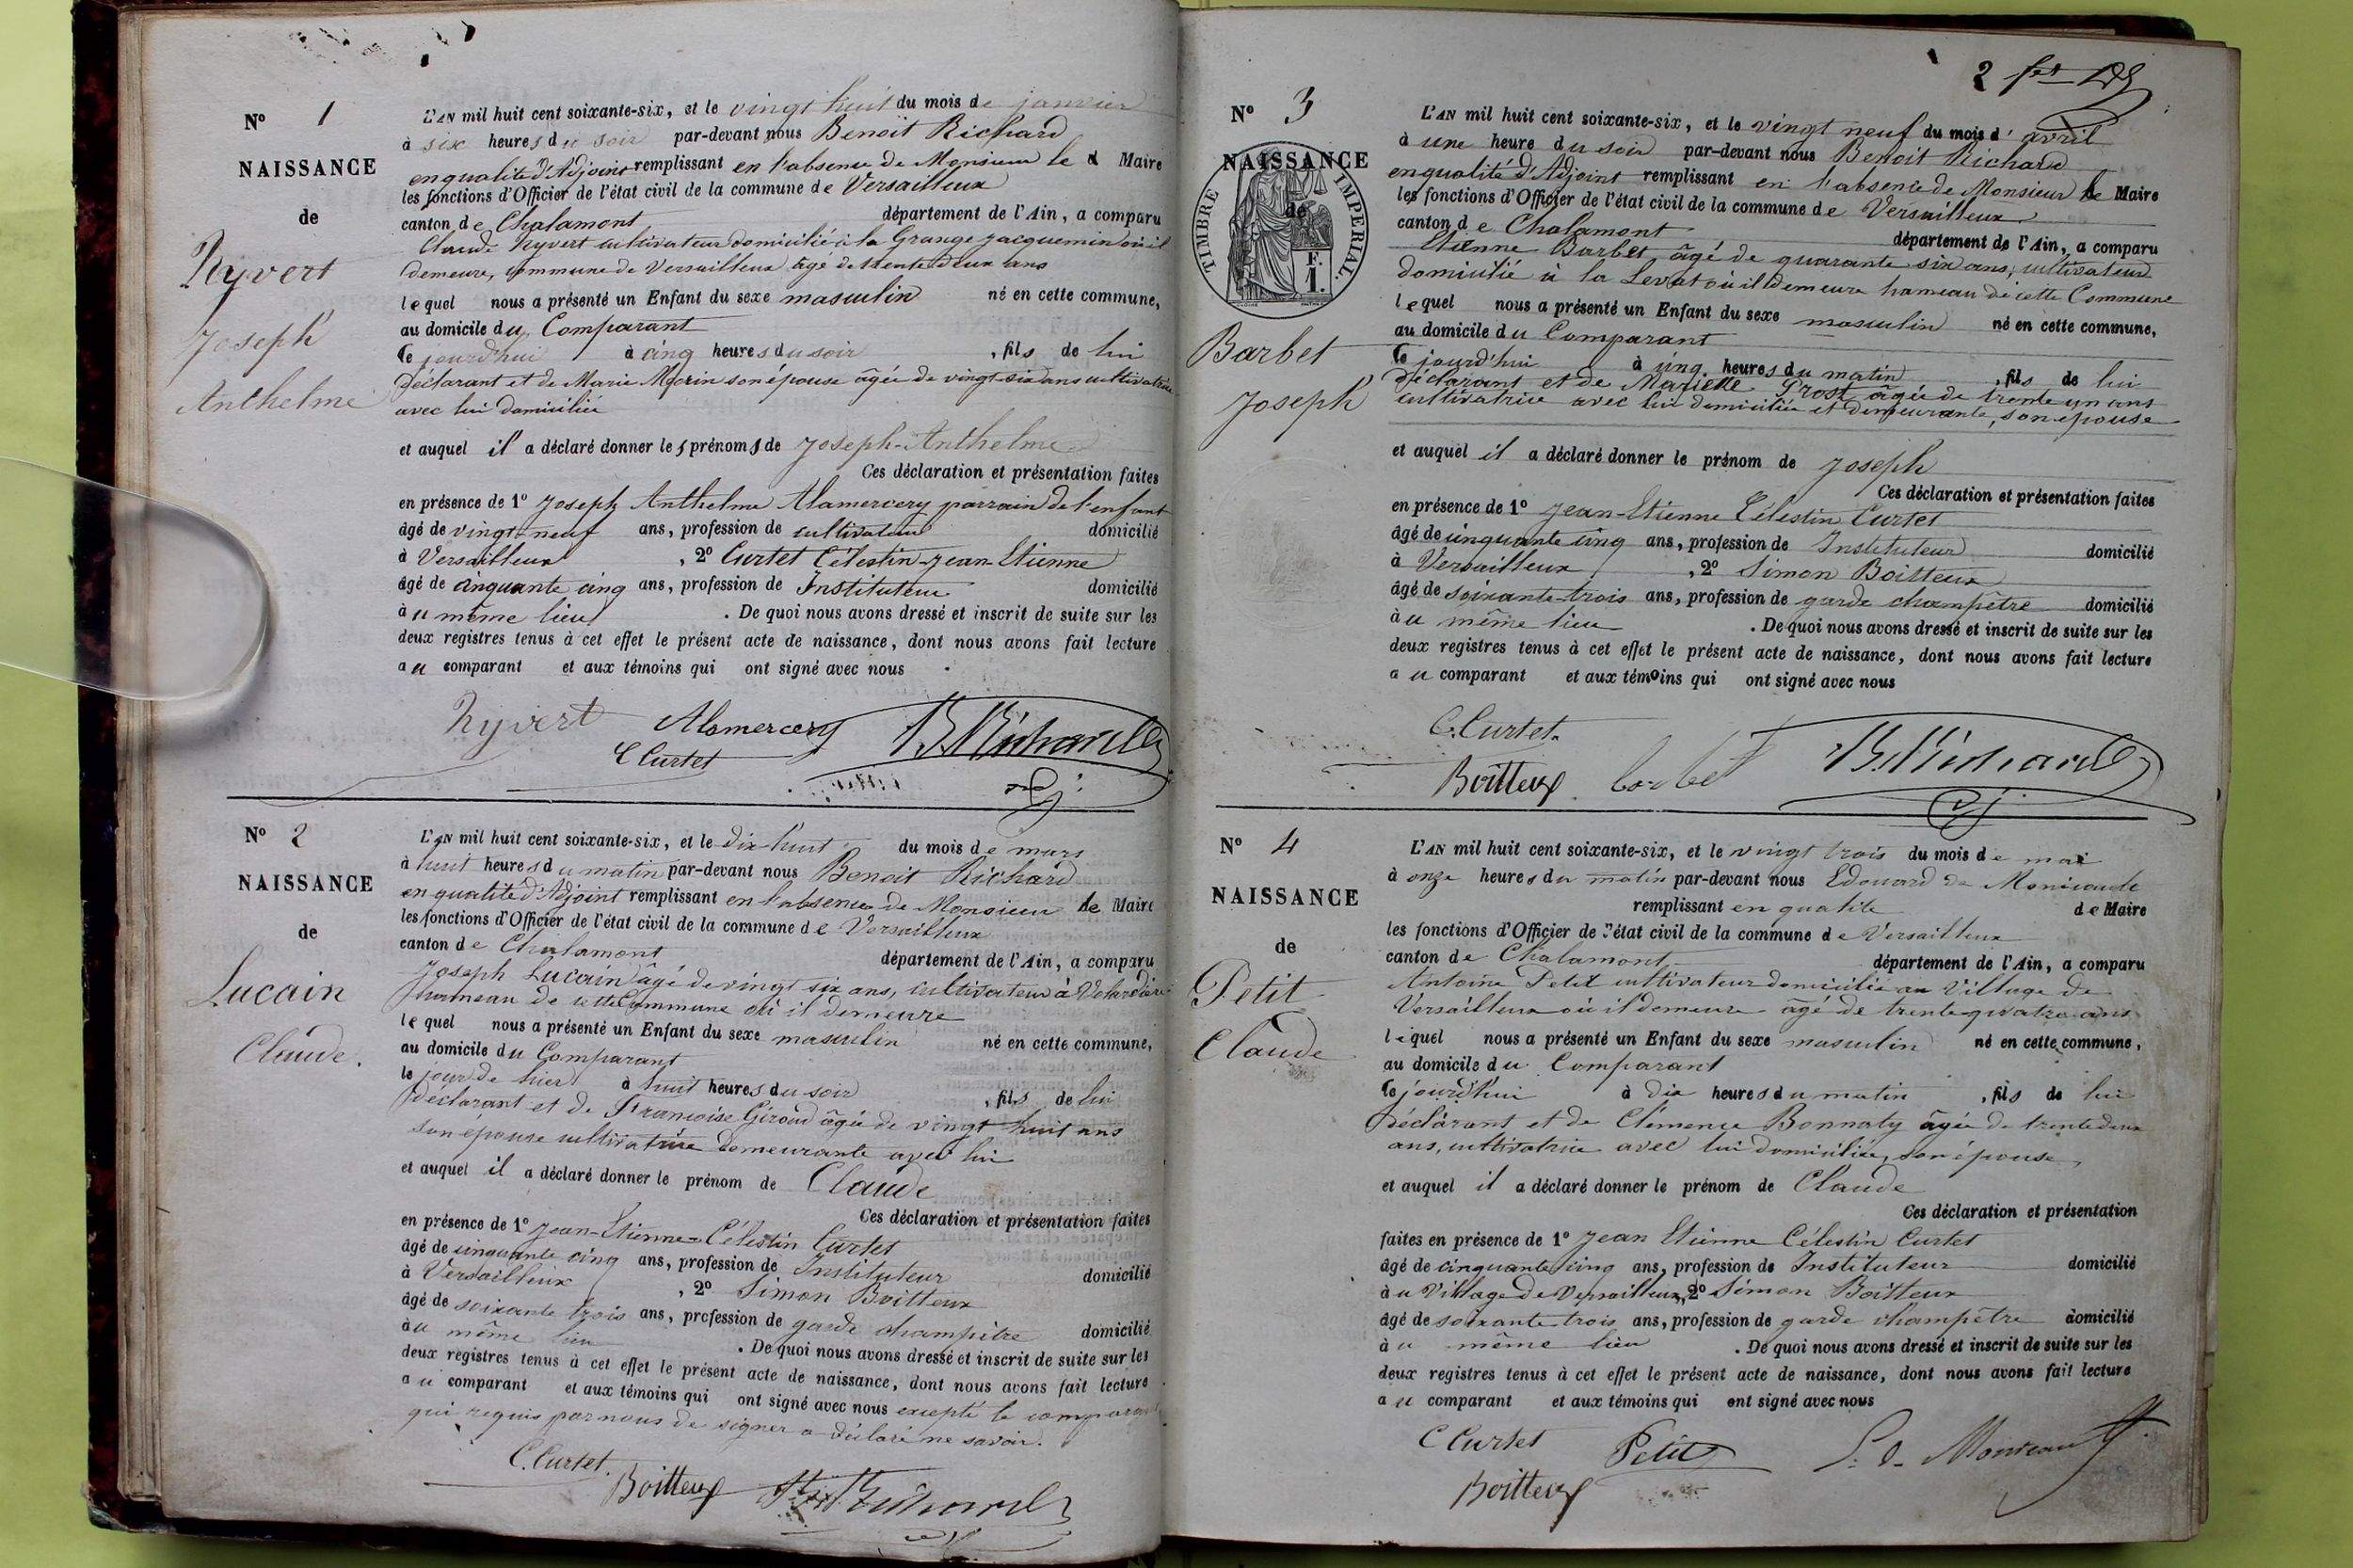 N° 1
NAISSANCE
de
Ryvert
Joseph
Anthelme
L'AN mil huit cent soixante-six, et le vingt huit du mois de janvier
à six heures du soir par-devant nous Benoît Richard
en qualité d'Adjoint remplissant en l'absence de Monsieur le Maire
les fonctions d'Officier de l'état civil de la commune de Versailleux
canton de Chalamont département de l'Ain, a comparu
Claude Ryvert cultivateur domicilié à la Grange Jacquemin où il
demeure, commune de Versailleux âgé de trente deux ans
lequel nous a présenté un Enfant du sexe masculin né en cette commune,
au domicile du Comparant
Ce jourd'hui à cinq heures du soir, fils de lui
Déclarant et de Marie Morin son épouse âgée de vingt-six ans cultivatrice
avec lui domiciliée
et auquel il a déclaré donner les prénoms de Joseph-Anthelme
Ces déclaration et présentation faites
en présence de 1° Joseph Anthelme Alamercery parrain de l'enfant
âgé de vingt-neuf ans, profession de cultivateur domicilié
à Versailleux, 2° Curtet Célestin-Jean-Etienne
âgé de cinquante cinq ans, profession de Instituteur domicilié
au même lieu. De quoi nous avons dressé et inscrit de suite sur les
deux registres tenus à cet effet le présent acte de naissance, dont nous avons fait lecture
au comparant et aux témoins qui ont signé avec nous
Ryvert Alamercery B. Richard
C Curtet
adj.
N° 2
NAISSANCE
de
Lucain
Claude.
L'AN mil huit cent soixante-six, et le dix-huit du mois de mars
à huit heures du matin par-devant nous Benoit Richard
en qualité d'Adjoint remplissant en l'absence de Monsieur le Maire
les fonctions d'Officier de l'état civil de la commune de Versailleux
canton de Chalamont département de l'Ain, a comparu
Joseph Lucain âgé de vingt six ans, cultivateur à
hameau de cette Commune où il demeure
lequel nous a présenté un Enfant du sexe masculin né en cette commune,
au domicile du Comparant
le jour de hier à huit heures du soir, fils de lui
Déclarant et de Francoise Giroud âgée de vingt huit ans
son épouse cultivatrice demeurante avec lui
et auquel il a déclaré donner le prénom de Claude
Ces déclaration et présentation faites
en présence de 1° Jean-Etienne-Célestin Curtet
âgé de cinquante cinq ans, profession de Instituteur domicilié
à Versailleux, 2° Simon Boitteux
âgé de soixante trois ans, profession de garde champêtre domicilié
au même lieu. De quoi nous avons dressé et inscrit de suite sur les
deux registres tenus à cet effet le présent acte de naissance, dont nous avons fait lecture
au comparant et aux témoins qui ont signé avec nous excepté le comparant
qui requis par nous de signer a déclaré ne savoir.
C. Curtet.
Boitteux B. Richard
2
N° 3
NAISSANCE
de
TIMBRE IMPERIAL.
F.
1.
Barbet
Joseph
L'AN mil huit cent soixante-six, et le vingt neuf du mois d'avril
à une heure du soir par-devant nous Benoit Richard
en qualité d'Adjoint remplissant en l'absence de Monsieur le Maire
les fonctions d'Officier de l'état civil de la commune de Versailleux
canton de Chalamont département de l'Ain, a comparu
Etienne Barbet, âgé de quarante six ans, cultivateur
domicilié à la Levat où il demeure hameau de cette Commune
lequel nous a présenté un Enfant du sexe masculin né en cette commune,
au domicile du Comparant
Ce jourd'hui à cinq heures du matin, fils de lui
Déclarant et de Mariette Prost âgée de trente un ans
cultivatrice avec lui domiciliée et demeurante, son épouse
et auquel il a déclaré donner le prénom de Joseph
Ces déclaration et présentation faites
en présence de 1° Jean-Etienne Célestin Curtet
âgé de cinquante cinq ans, profession de Instituteur domicilié
à Versailleux, 2° Simon Boitteux
âgé de soixante-trois ans, profession de garde champêtre domicilié
au même lieu. De quoi nous avons dressé et inscrit de suite sur les
deux registres tenus à cet effet le présent acte de naissance, dont nous avons fait lecture
au comparant et aux témoins qui ont signé avec nous
C. Curtet.
Boitteux barbet B. Richard
adj.
N° 4
NAISSANCE
de
Petit
Claude
L'AN mil huit cent soixante-six, et le vingt trois du mois de mai
à onze heures du matin par-devant nous Edouard de Monicault
remplissant en qualité de Maire
les fonctions d'Officier de l'état civil de la commune de Versailleux
canton de Chalamont, département de l'Ain, a comparu
Antoine Petit cultivateur domicilié au Village de
Versailleux où il demeure âgé de trente-quatre ans
lequel nous a présenté un Enfant du sexe masculin né en cette commune,
au domicile du Comparant
Ce jourd'hui à dix heures du matin, fils de lui
Déclarant et de Clémence Bonnaty âgée de trente deux
ans, cultivatrice avec lui domiciliée, son épouse,
et auquel il a déclaré donner le prénom de Claude
Ces déclaration et présentation
faites en présence de 1° Jean Etienne Célestin Curtet
âgé de cinquante cinq ans, profession de Instituteur domicilié
au Village de Versailleux, 2° Simon Boitteux
âgé de soixante trois ans, profession de garde champêtre domicilié
au même lieu. De quoi nous avons dressé et inscrit de suite sur les
deux registres tenus à cet effet le présent acte de naissance, dont nous avons fait lecture
au comparant et aux témoins qui ont signé avec nous
C Curtet Petit E. d. Monicault
Boitteux